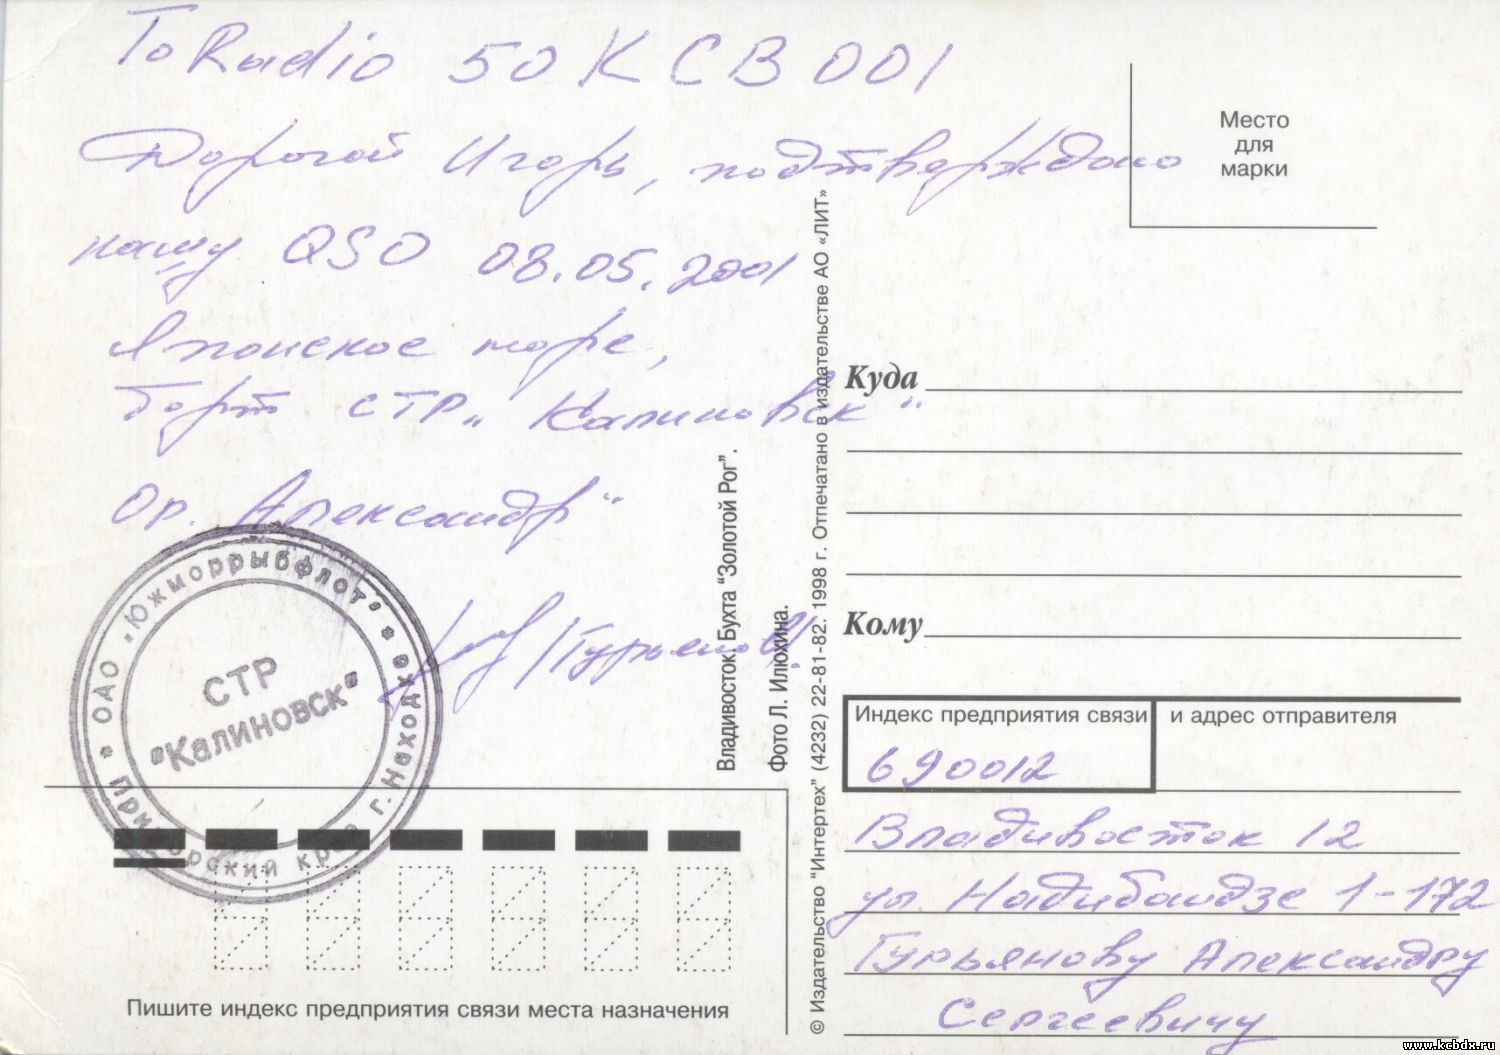 To Radio 50KCB001
Дорогой Игорь, подтверждаю
нашу QSO 08.05.2001
Японское море,
борт СТР „Калиновск"
Op. Александр"
/Гурьянов/
ОАО "Южморрыбфлот" * г. Находка * Приморский край *
СТР
"Калиновск"
Владивосток. Бухта "Золотой Рог".
Фото Л. Илюхина.
© Издательство "Интертех" (4232) 22-81-82. 1998 г. Отпечатано в издательстве АО «ЛИТ»
Место
для
марки
Куда
Кому
Индекс предприятия связи и адрес отправителя
690012
Владивосток 12
ул. Надибаидзе 1-172
Гурьянову Александру
Сергеевичу
Пишите индекс предприятия связи места назначения
www.kcbdx.ru